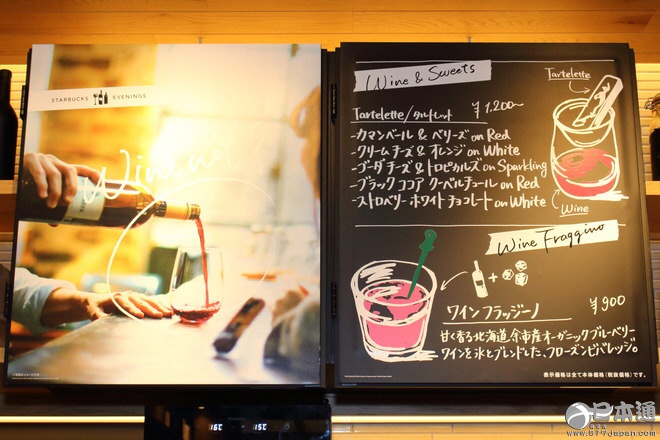 STARBUCKS EVENINGS
Wine
Wine & Sweets
Tartelette/タルトレット ¥1,200~
-カマンベール & ベリーズ on Red
-クリームチーズ & オレンジ on White
-ゴーダチーズ & トロピカルズ on Sparkling
-ブラックココア クーベルチュール on Red
-ストロベリーホワイトチョコレート on White
Tartelette
Wine
Wine Fraggino
ワインフラッジーノ ¥900
甘く香る北海道余市産オーガニックブルーベリー
ワインを氷とブレンドした、フローズンビバレッジ。
表示価格は全て本体価格(税抜価格)です。
16℃ 15℃
日本通
www.517japan.com